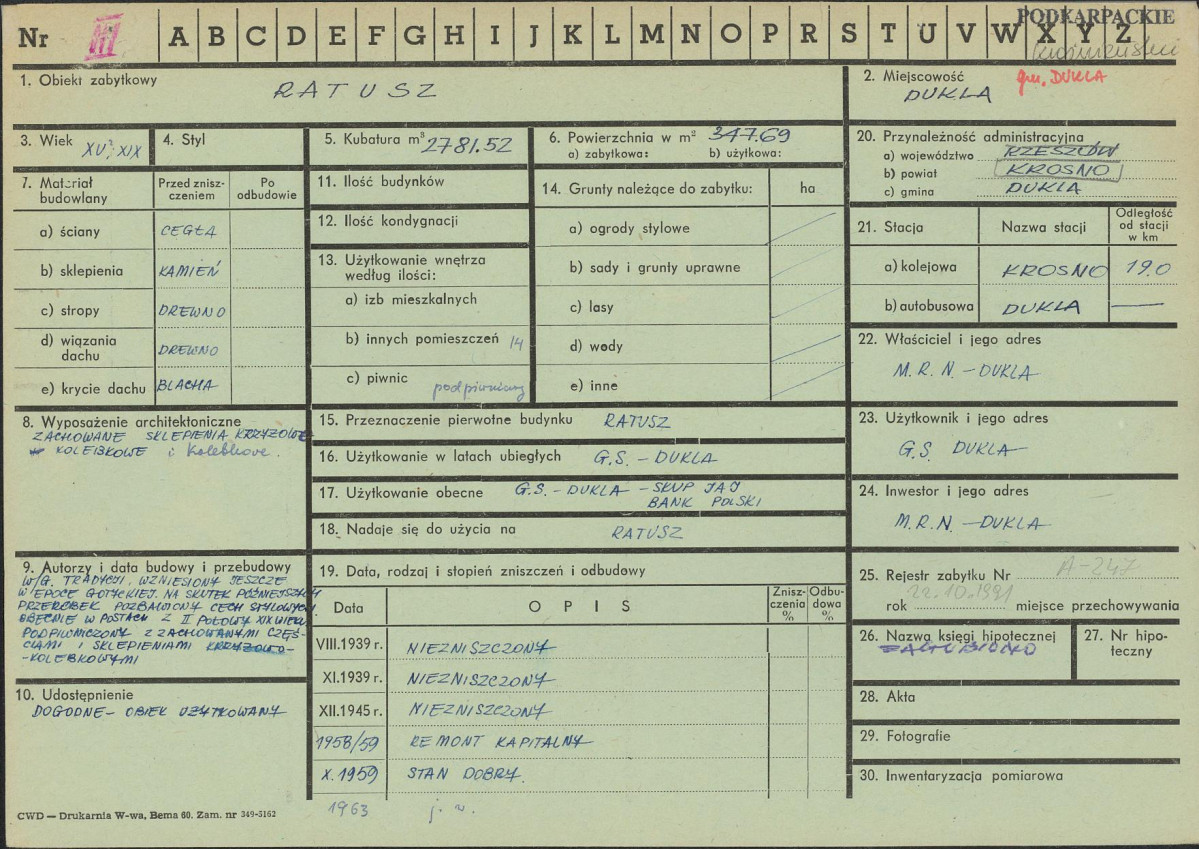 Nr III A B C D E F G H I J K L M N O P R S T U V W X Y Z
PODKARPACKIE
krośnieński
1. Obiekt zabytkowy
RATUSZ
2. Miejscowość
gm. DUKLA
DUKLA
3. Wiek XV?, XIX
4. Styl
5. Kubatura m³ 2781.52
6. Powierzchnia w m² 347.69
a) zabytkowa: b) użytkowa:
20. Przynależność administracyjna
a) województwo RZESZÓW
b) powiat KROSNO
c) gmina DUKLA
7. Materiał budowlany
Przed zniszczeniem
Po odbudowie
a) ściany CEGŁA
b) sklepienia KAMIEŃ
c) stropy DREWNO
d) wiązania dachu DREWNO
e) krycie dachu BLACHA
11. Ilość budynków
12. Ilość kondygnacji
13. Użytkowanie wnętrza
według ilości:
a) izb mieszkalnych
b) innych pomieszczeń 14
c) piwnic podpiwniczony
14. Grunty należące do zabytku: ha
a) ogrody stylowe
b) sady i grunty uprawne
c) lasy
d) wody
e) inne
21. Stacja Nazwa stacji Odległość od stacji w km
a) kolejowa KROSNO 19.0
b) autobusowa DUKLA —
22. Właściciel i jego adres
M.R.N – DUKLA
8. Wyposażenie architektoniczne
ZACHOWANE SKLEPIENIA KRZYŻOWE
KOLEBKOWE i Kolebkowe.
15. Przeznaczenie pierwotne budynku RATUSZ
16. Użytkowanie w latach ubiegłych G.S. – DUKLA
17. Użytkowanie obecne G.S. – DUKLA – SKUP JAJ
BANK POLSKI
18. Nadaje się do użycia na RATUSZ
23. Użytkownik i jego adres
G.S. DUKLA
24. Inwestor i jego adres
M.R.N. – DUKLA
9. Autorzy i data budowy i przebudowy
W/G. TRADYCJI, WZNIESIONY JESZCZE
W EPOCE GOTYCKIEJ. NA SKUTEK PÓŹNIEJSZYCH
PRZERÓBEK POZBAWIONY CECH STYLOWYCH
OBECNIE W POSTACI Z II POŁOWY XIX WIEKU
PODPIWNICZONY Z ZACHOWANYMI CZĘŚ-
CIAMI I SKLEPIENIAMI KRZYŻOWO-
-KOLEBKOWYMI
10. Udostępnienie
DOGODNE – OBIEK UŻYTKOWANY
19. Data, rodzaj i stopień zniszczeń i odbudowy
Data OPIS Zniszczenia % Odbudowa %
VIII.1939 r. NIEZNISZCZONY
XI.1939 r. NIEZNISZCZONY
XII.1945 r. NIEZNISZCZONY
1958/59 REMONT KAPITALNY
X. 1959 STAN DOBRY
1963 j. w.
25. Rejestr zabytku Nr A-247
rok 22.10.1991 miejsce przechowywania
26. Nazwa księgi hipotecznej
27. Nr hipoteczny
28. Akta
29. Fotografie
30. Inwentaryzacja pomiarowa
CWD — Drukarnia W-wa, Bema 60. Zam. nr 349-5162